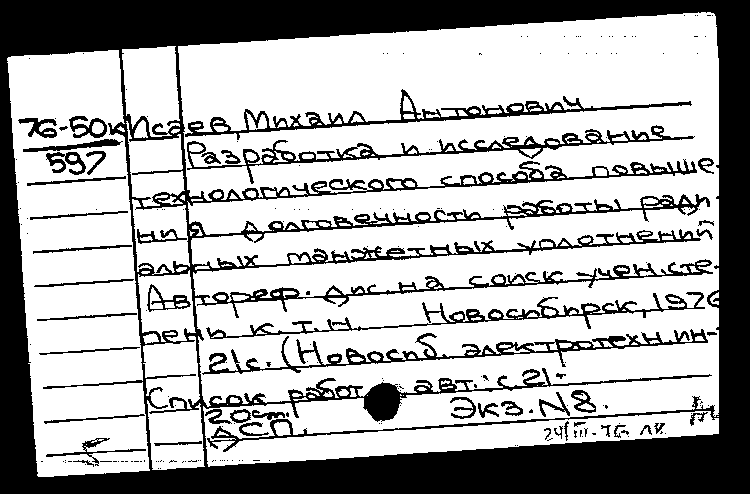 76-50к Исаев, Михаил Антонович.
597 Разработка и исследование
технологического способа повыше-
ния долговечности работы ради-
альных манжетных уплотнений
Автореф. дис. на соиск. учен. сте-
пень к. т. н. Новосибирск, 1976
21с. (Новосиб. электротехн. ин-
Список работ авт.: с. 21.
20 ст. Экз. N8.
ДСП.
24/III-76